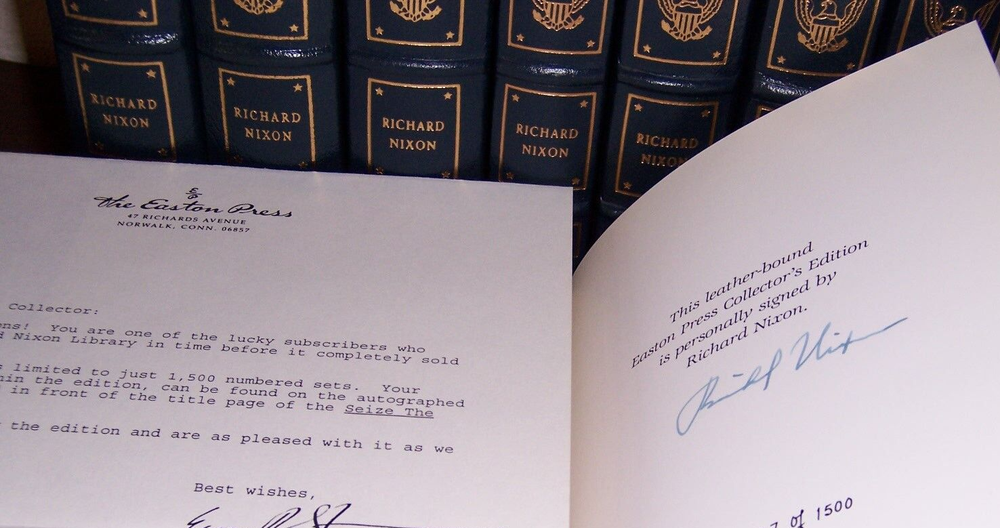 RICHARD
NIXON
RICHARD
NIXON
RICHARD
NIXON
RICHARD
NIXON
RICHARD
NIXON
The Easton Press
47 RICHARDS AVENUE
NORWALK, CONN. 06857
Collector:
ns! You are one of the lucky subscribers who
d Nixon Library in time before it completely sold
limited to just 1,500 numbered sets. Your
in the edition, can be found on the autographed
in front of the title page of the Seize The
the edition and are as pleased with it as we
Best wishes,
This leather-bound
Easton Press Collector's Edition
is personally signed by
Richard Nixon.
Richard Nixon
7 of 1500